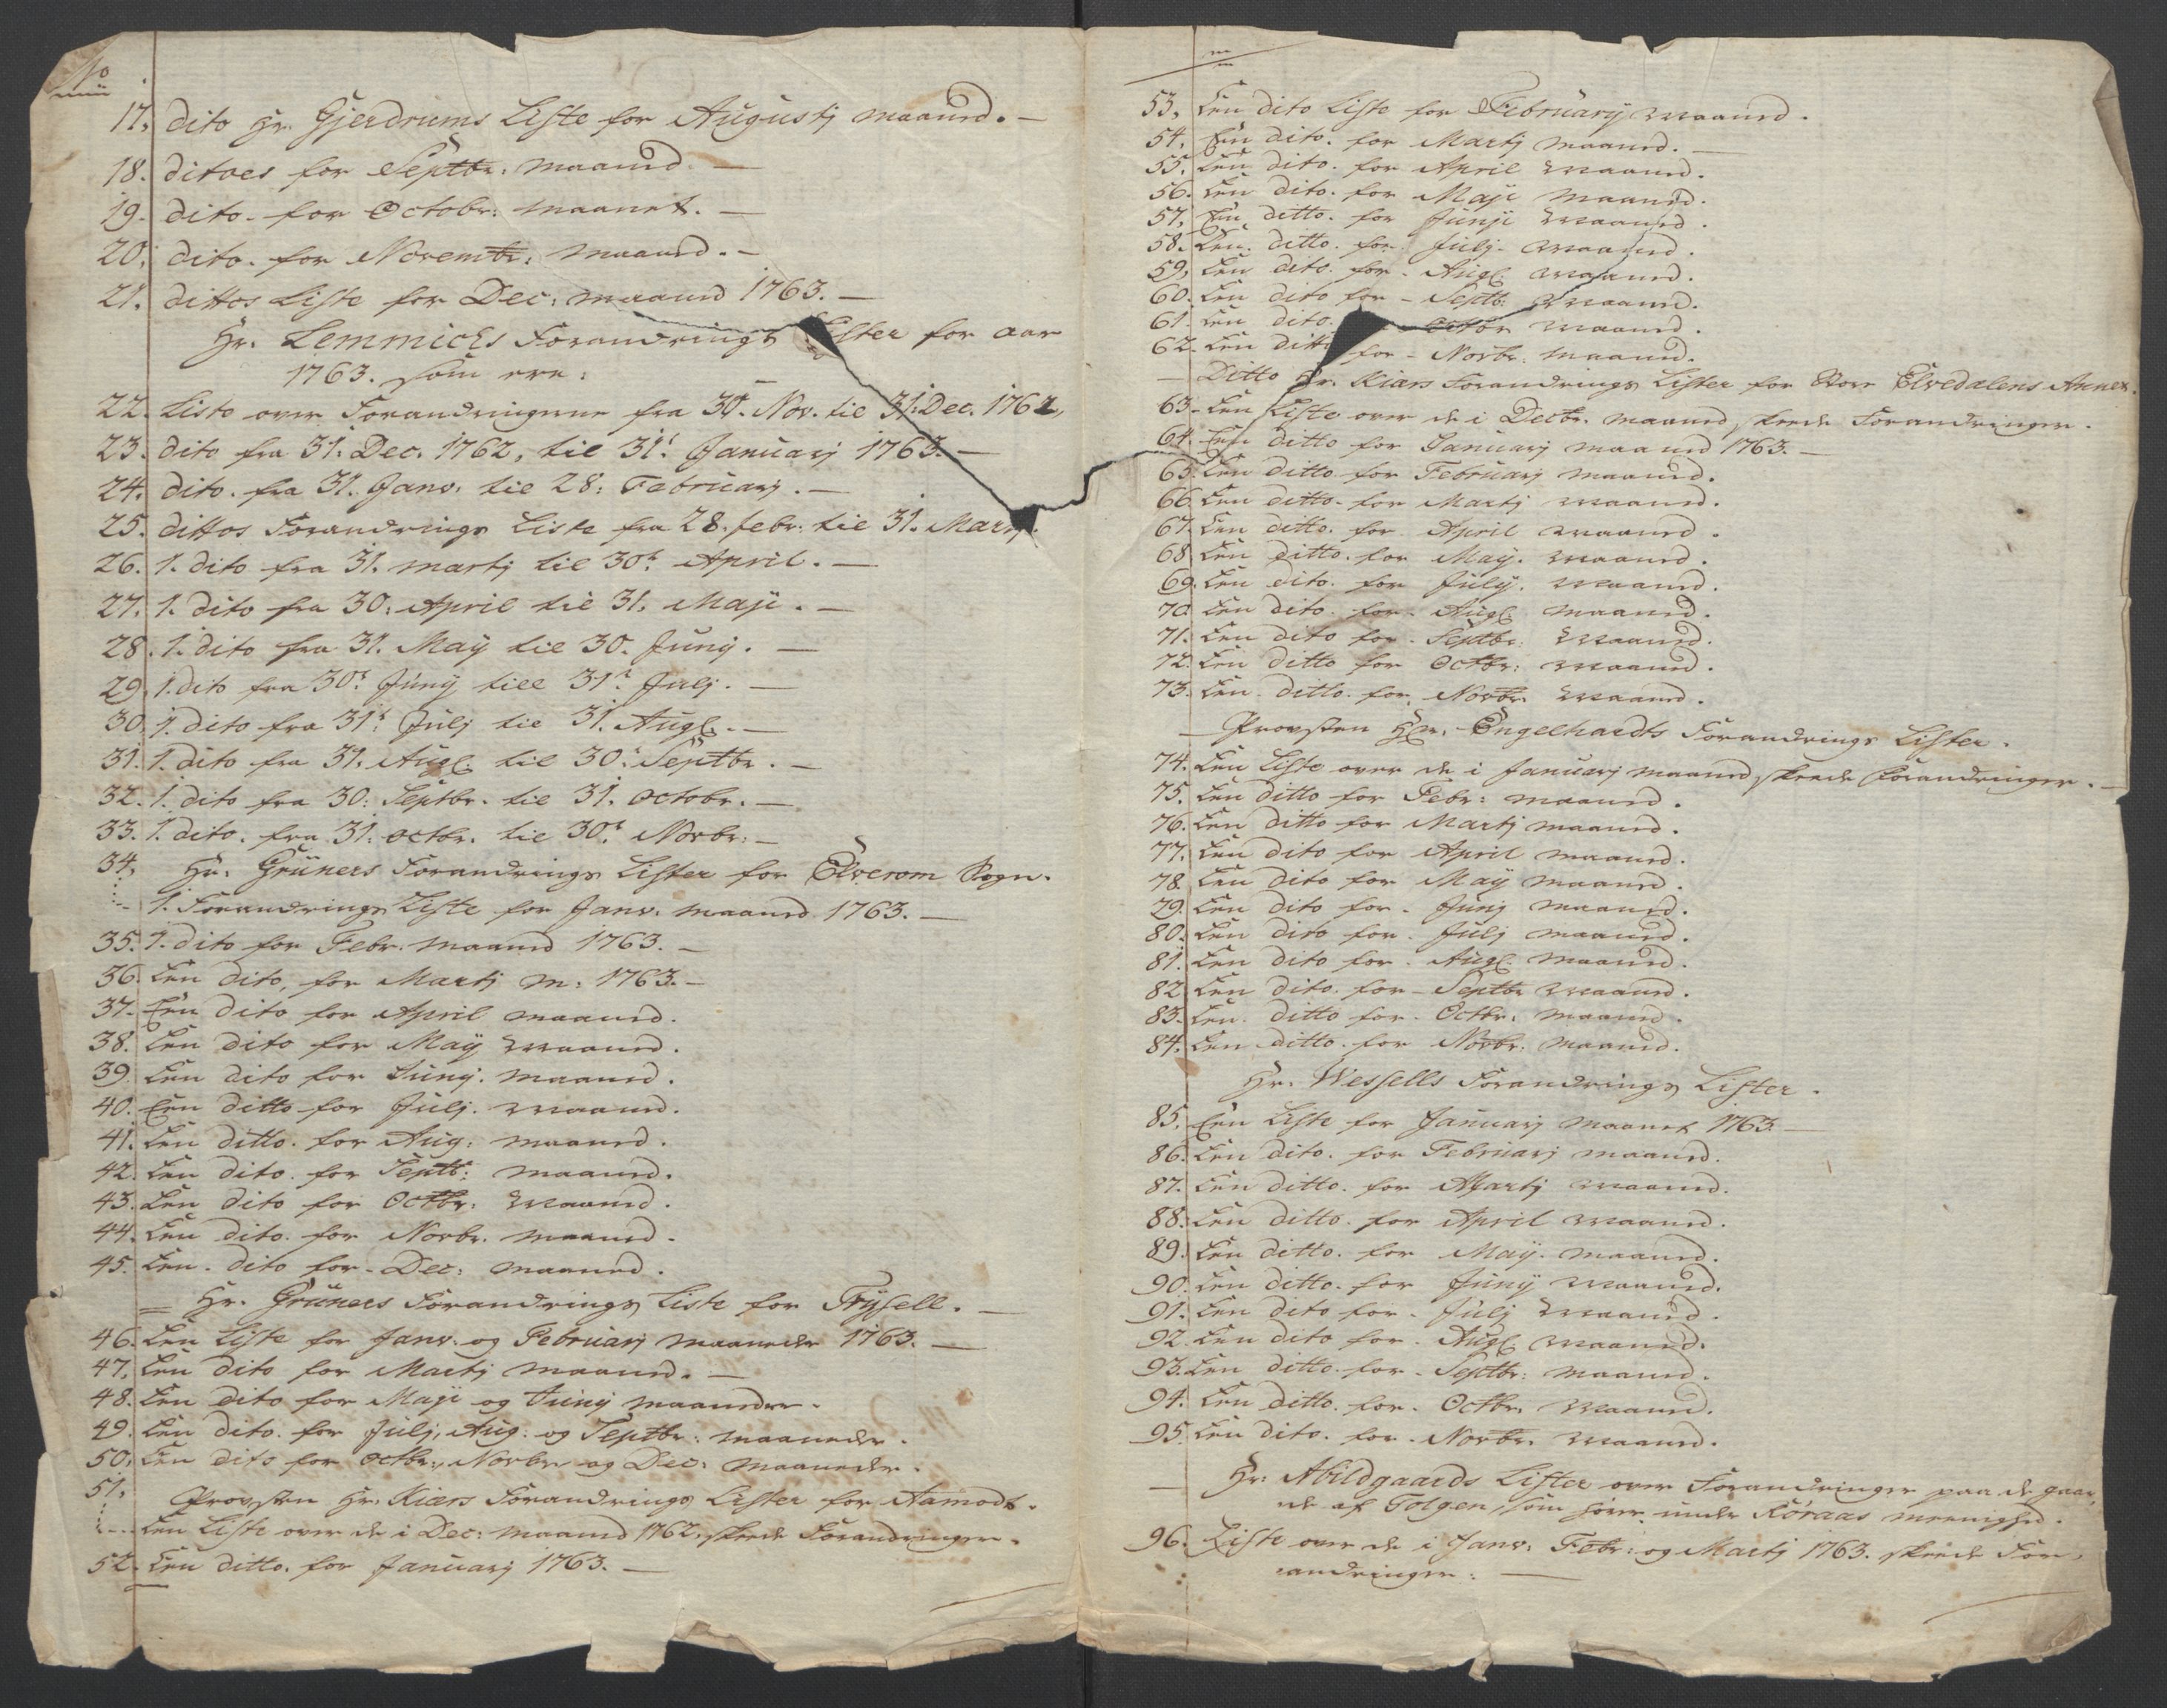 No
17. dito Hr. Gjerdrums Liste for Augustj maaned. —
18. ditoes for Septbr: maaned. —
19. dito. for Octobr: maanet. —
20. dito. for Novembr: maaned. —
21. dittos Liste for Dec: maaned 1763. —
Hr. Lemmichs Forandrings Lister for aar
1763. som ere:
22. Liste over Forandringerne fra 30. Nov. til 31. Dec. 1762,
23. dito fra 31. Dec. 1762, til 31t Januarj 1763. —
24. dito. fra 31. Janv. til 28: Februarj. —
25. dittos Forandrings Liste fra 28. febr. til 31. Martj.
26. 1. dito fra 31. martj til 30t April. —
27. 1. dito fra 30: April til 31. Maji. —
28. 1. dito fra 31. Maÿ til 30. Junj. —
29. 1. dito fra 30t Junÿ till 31t Julj. —
30. 1. dito fra 31t Julj til 31. Augt. —
31. 1. dito fra 31. Augt. til 30t Septbr. —
32. 1. dito fra 30: Septbr. til 31. octobr. —
33. 1. dito. fra 31. octbr. til 30t Novbr: —
34. Hr. Grüners Forandrings Lister for Elverom Sogn.
1. Forandrings Liste for Janv. maaned 1763. —
35. 1. dito for Febr. maaned 1763. —
36. Een dito, for Martj m: 1763. —
37. Een dito for April maaned.
38. Een dito for Maÿ maaned.
39. Een dito for Junj. maaned.
40. Een ditto for Julj. maaned.
41. Een ditto. for Aug: maaned.
42. Een dito. for Septb: maaned.
43. Een dito for Octbr. maaned.
44. Een dito. for Novbr. maaned.
45. Een. dito for - Dec: maaned.
= Hr. Grüners Forandrings Liste for Trÿsell. —
46. Een Liste for Janv. og Februarj maaneder 1763. —
47. Een dito for Martj maaned. —
48. Een dito for Maji og Junij maaneder.
49. Een dito. for Julj, Aug. og Septbr: maaneder.
50. Een dito for octbr., Novbr og Dec: maaneder.
51. Provsten Hr. Kiærs Forandrings Lister for Aamodt.
Een Liste over de i Dec: maaned 1762, skeede Forandringer.
52. Een ditto. for Januarj 1763. —
53. Een dito Liste for Februarij maaned.
54. Een dito. for Martj maaned. —
55. Een dito. for April maaned.
56. Een dito. for Maji maaned.
57. Een ditto. for Junji maaned.
58. Een. ditto. for Julj. maaned.
59. Een dito. for - Augt. maaned.
60. Een dito for - Septb: maaned.
61. Een dito. octbr maaned.
62. Een ditto for - Novbr: maaned.
— Ditto Hr. Kiærs Forandrings Lister for Store Elvedalens Annex.
63. Een Liste over de i Decbr. maaned skeede Forandringer.
64. Een ditto for Januarj maaned 1763. —
65. Een ditto for Februarij maaned.
66. Een ditto. for Martj maaned.
67. Een ditto. for April maaned.
68. Een ditto. for Maÿ. maaned.
69. Een dito. for Julÿ. maaned.
70. Een dito. for - Augt. maaned.
71. Een dito for - Septbr: maaned.
72. Een ditto for Octbr: maaned.
73. Een. ditto. for. Novbr. maaned.
— Provsten Hr. Engelhardts Forandrings Lister.
74. Een Liste over de i Januarj maaned, skeede Forandringer. —
75. Een ditto for Febr: maaned.
76. Een ditto for Martj maaned.
77. Een dito for April maaned.
78. Een dito for Maÿ maaned.
79. Een dito for - Junj maaned.
80. Een dito for. Julj maaned.
81. Een dito for. Augt. maaned.
82. Een dito. for - Septbr maaned.
83. Een. ditto for - Octbr: maaned.
84. Een ditto. for Novbr: maaned.
Hr. Wessells Forandrings Lister.
85. Een Liste for Januarj maanet 1763. —
86. Een dito. for Februarj maaned.
87. Een ditto. for Martj maaned.
88. Een ditto. for April maaned.
89. Een ditto. for Maÿ. maaned.
90. Een ditto. for Junÿ maaned.
91. Een dito for - Julj maaned.
92. Een dito for - Augt maaned.
93. Een ditto. for - Septbr: maaned.
94. Een ditto. for - Octbr. maaned.
95. Een dito. for - Novbr. maaned.
— Hr: Abildgaards Lister over Forandringer paa de gaar,
de af Tolgen, som hører under Röraas menighed.
96. Liste over de i Janv: Febr: og Martj 1763. skeede For,
andringer: —